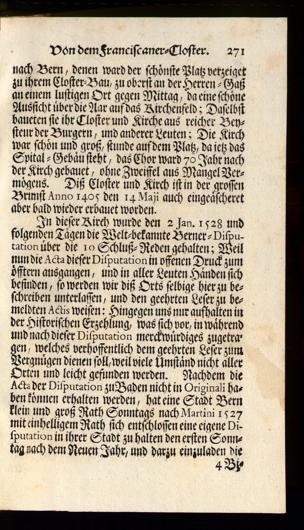 Von dem Franciscaner-Closter. 271
nach Bern, denen ward der schönste Platz verzeiget
zu ihrem Closter-Bau, zu oberst an der Herren-Gaß
an einem lustigen Ort gegen Mittag, da eine schöne
Aussicht über die Aar auf das Kirchenfeld; Daselbst
baueten sie ihr Closter und Kirche aus reicher Bey-
steur der Burgern, und anderer Leuten; Die Kirch
war schön und groß, stunde auf dem Platz, da jetz das
Spital-Gebäu steht, das Chor ward 70 Jahr nach
der Kirch gebauet, ohne Zweiffel aus Mangel Ver-
mögens. Diß Closter und Kirch ist in der grossen
Brunst Anno 1405 den 14 Maji auch eingeäscheret
aber bald wieder erbauet worden.
In dieser Kirch wurde den 2 Jan. 1528 und
folgenden Tägen die Welt-bekannte Berner-Dispu-
tation über die 10 Schluß-Reden gehalten; Weil
nun die Acta dieser Disputation in offenen Druck zum
öfftern ausgangen, und in aller Leuten Händen sich
befinden, so werden wir diß Orts selbige hier zu be-
schreiben unterlassen, und den geehrten Leser zu be-
meldten Actis weisen: Hingegen uns nur aufhalten in
der Historischen Erzehlung, was sich vor, in während
und nach dieser Disputation merckwürdiges zugetra-
gen, welches verhoffentlich dem geehrten Leser zum
Vergnügen dienen soll, weil viel Umständ nicht aller
Orten und leicht gefunden werden. Nachdem die
Acta der Disputation zu Baden nicht in Originali ha-
ben können erhalten werden, hat eine Stadt Bern
klein und groß Rath Sonntags nach Martini 1527
mit einhelligem Rath sich entschlossen eine eigene Di-
sputation in ihrer Stadt zu halten den ersten Sonn-
tag nach dem Neuen Jahr, und darzu einzuladen die
4 Bi-